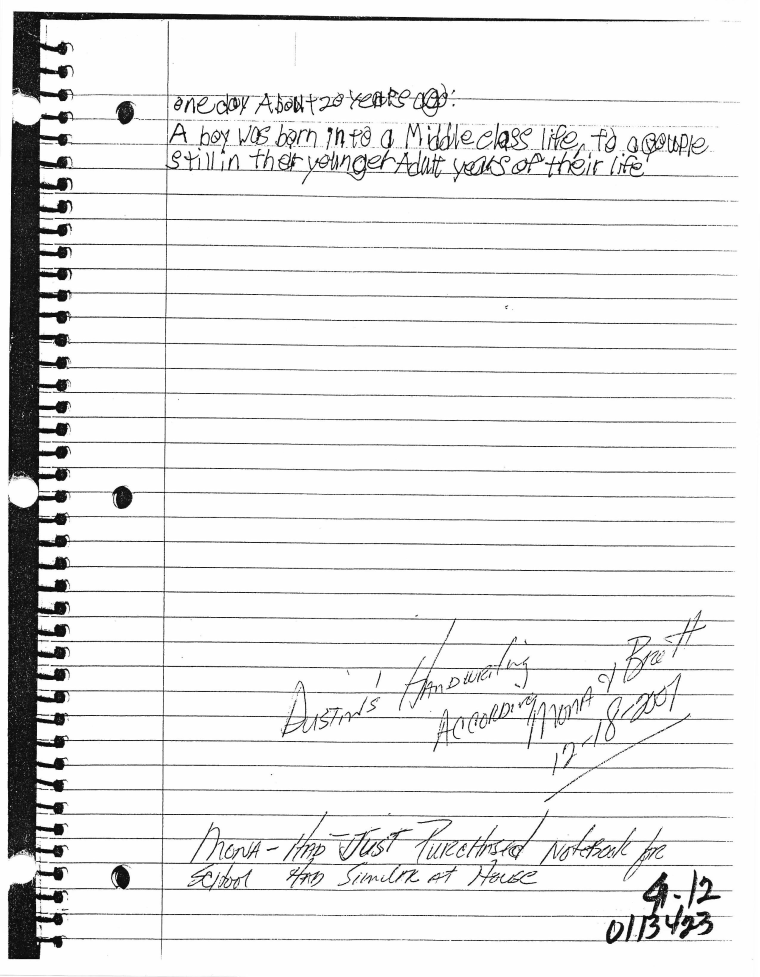 one day About 20 years ago:
A boy was born into a Middle class life, to a couple
still in ther younger Adult years of their life
Dustin's Handwriting
According Mona & Brett
12-18-2007
Mona - Had Just Purchased Notebook for
School And Similar at House
G-12
0113423